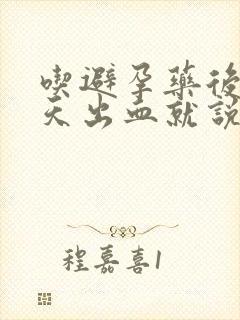 喫避孕藥後
天出血就說
程嘉喜1